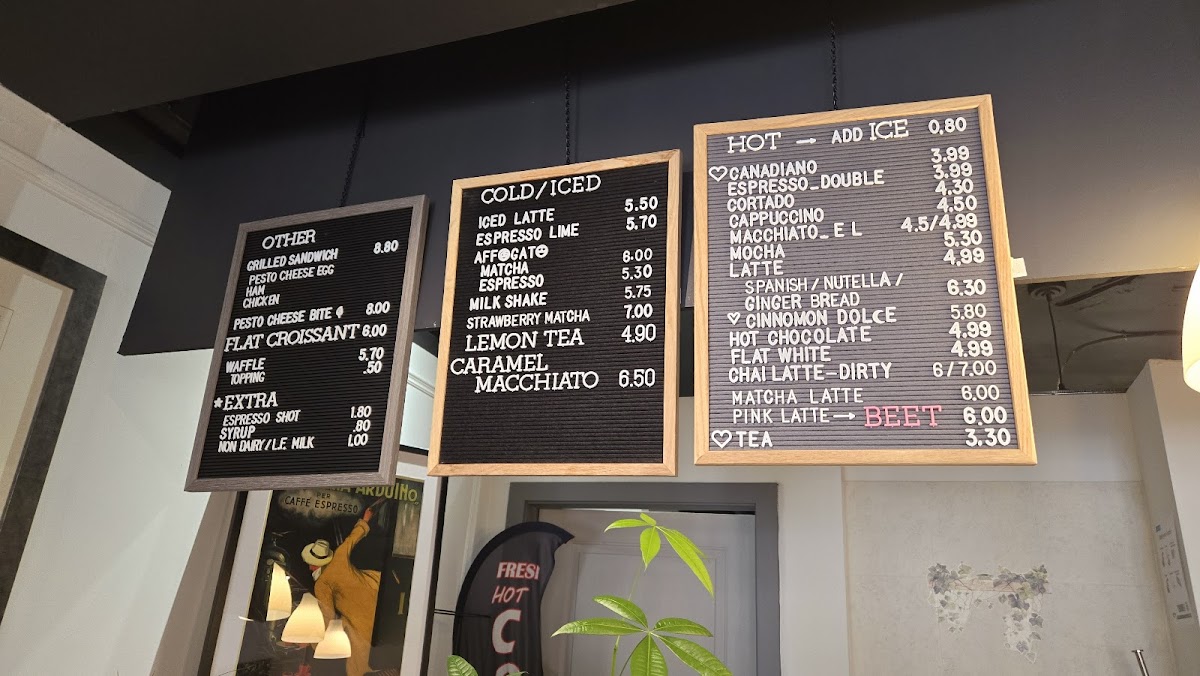 OTHER
GRILLED SANDWICH 8.80
PESTO CHEESE EGG
HAM
CHICKEN
PESTO CHEESE BITE 8.00
FLAT CROISSANT 6.00
WAFFLE 5.70
TOPPING .50
★EXTRA
ESPRESSO SHOT 1.80
SYRUP .80
NON DAIRY/L.F. MILK 1.00
COLD/ICED
ICED LATTE 5.50
ESPRESSO LIME 5.70
AFFOGATO
MATCHA 6.00
ESPRESSO 5.30
MILK SHAKE 5.75
STRAWBERRY MATCHA 7.00
LEMON TEA 4.90
CARAMEL
MACCHIATO 6.50
HOT → ADD ICE 0,80
♡ CANADIANO 3.99
ESPRESSO_DOUBLE 3.99
CORTADO 4.30
CAPPUCCINO 4.50
MACCHIATO_ E L 4.5/4.99
MOCHA 5.30
LATTE 4,99
SPANISH/NUTELLA/
GINGER BREAD 6.30
♡ CINNOMON DOLCE 5.80
HOT CHOCOLATE 4.99
FLAT WHITE 4.99
CHAI LATTE-DIRTY 6/7.00
MATCHA LATTE 6.00
PINK LATTE → BEET 6.00
♡ TEA 3.30
ARDUINO
PER
CAFFE ESPRESSO
FRESH
HOT